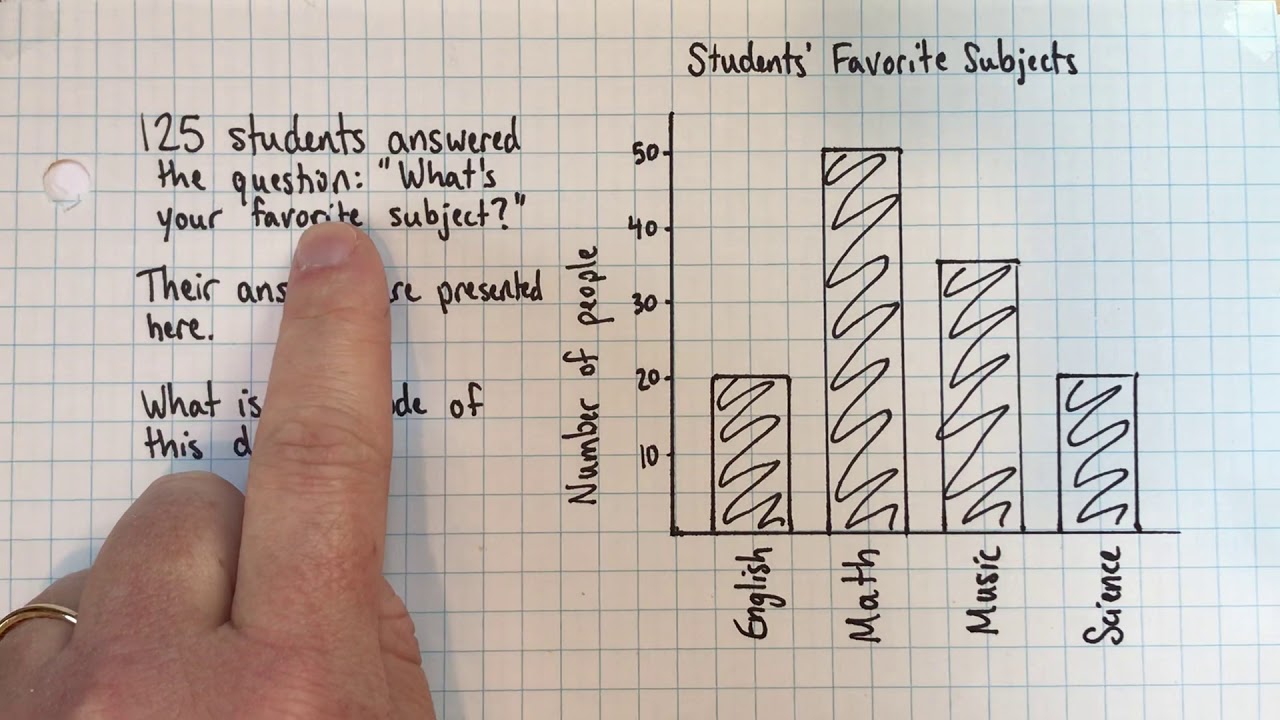 Students' Favorite Subjects
125 students answered
the question: "What's
your favorite subject?"
Their presented
here.
What is of
this
Number of people
50
40
30
20
10
English
Math
Music
Science